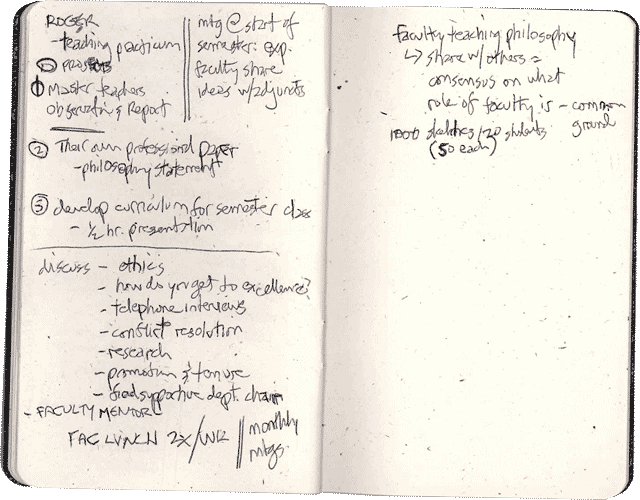 ROGER
- teaching practicum
① projects
① Master teachers
Observations Report
mtg @ start of
semester: exp.
faculty share
ideas w/adjuncts
② Their own professional paper
- philosophy statement
③ develop curriculum for semester class
- ½ hr. presentation
discuss - ethics
- how do you get to excellence?
- telephone interviews
- conflict resolution
- research
- promotion & tenure
- find supportive dept. chair
- FACULTY MENTOR
FAC LUNCH 2X/WK
monthly
mtgs.
faculty teaching philosophy
↳ share w/others =
consensus on what
role of faculty is - common
ground
1000 sketches/20 students
(50 each)